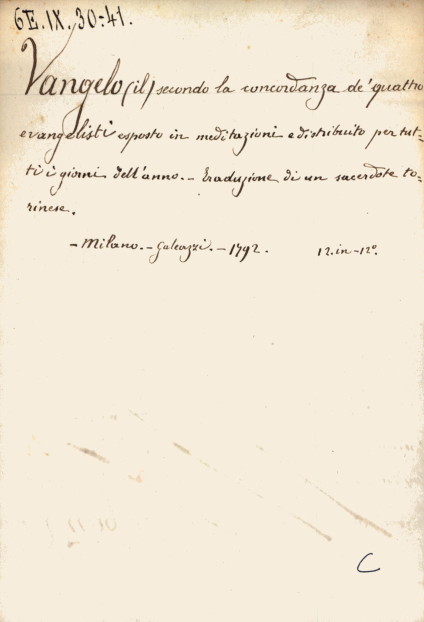 6E.IX.30-41.
Vangelo (il) secondo la concordanza de' quattro
evangelisti esposto in meditazioni e distribuito per tut-
ti i giorni dell'anno. - Traduzione di un sacerdote to-
rinese.
- Milano. - Galeazzi. - 1792. 12. in - 12º.
C